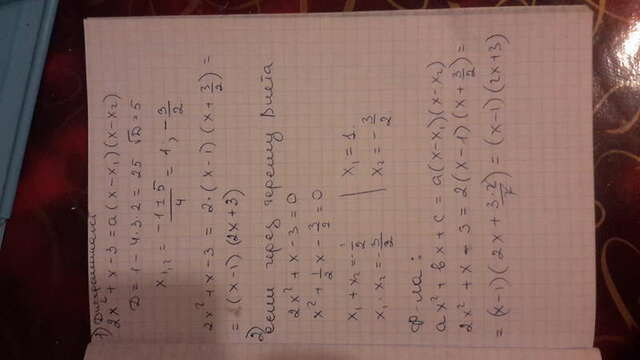 1) Дискриминант
2x² + x - 3 = a(x - x₁)(x - x₂)
D = 1 - 4·3·2 = 25 √D = 5
x₁,₂ = (-1 ± 5)/4 = 1, -3/2
2x² + x - 3 = 2·(x - 1)(x + 3/2) =
= (x - 1)(2x + 3)
2) если через теорему Виета
2x² + x - 3 = 0
x² + 1/2 x - 3/2 = 0
x₁ + x₂ = -1/2 | x₁ = 1
x₁ · x₂ = -3/2 | x₂ = -3/2
ф-ла:
ax² + bx + c = a(x - x₁)(x - x₂)
2x² + x - 3 = 2(x - 1)(x + 3/2) =
= (x - 1)(2x + 3·2/2) = (x - 1)(2x + 3)